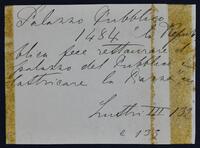 Palazzo Pubblico
1484 "la Repub
blica fece restaurare il
palazzo del Pubblico e
lastricare la Piazza"
Lustri III 133
c 133